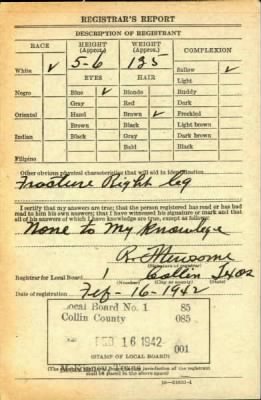 REGISTRAR'S REPORT
DESCRIPTION OF REGISTRANT
RACE HEIGHT (Approx.) WEIGHT (Approx.) COMPLEXION
White ✓ 5-6 135 Sallow ✓
EYES HAIR Light
Negro Blue ✓ Blonde Ruddy
Gray Red Dark
Oriental Hazel Brown ✓ Freckled
Brown Black Light brown
Indian Black Gray Dark brown
Bald Black
Filipino
Other obvious physical characteristics that will aid in identification
Fracture Right leg
I certify that my answers are true; that the person registered has read or has had read to him his own answers; that I have witnessed his signature or mark and that all of his answers of which I have knowledge are true, except as follows:
None to My Knowlege
R. Newsome
(Signature of registrar)
Registrar for Local Board 1 Collin Texas
Date of registration Feb-16-1942
Local Board No. 1 85
Collin County 085
FEB 16 1942 001
(STAMP OF LOCAL BOARD)
of the registrant
shall be placed in the above space)